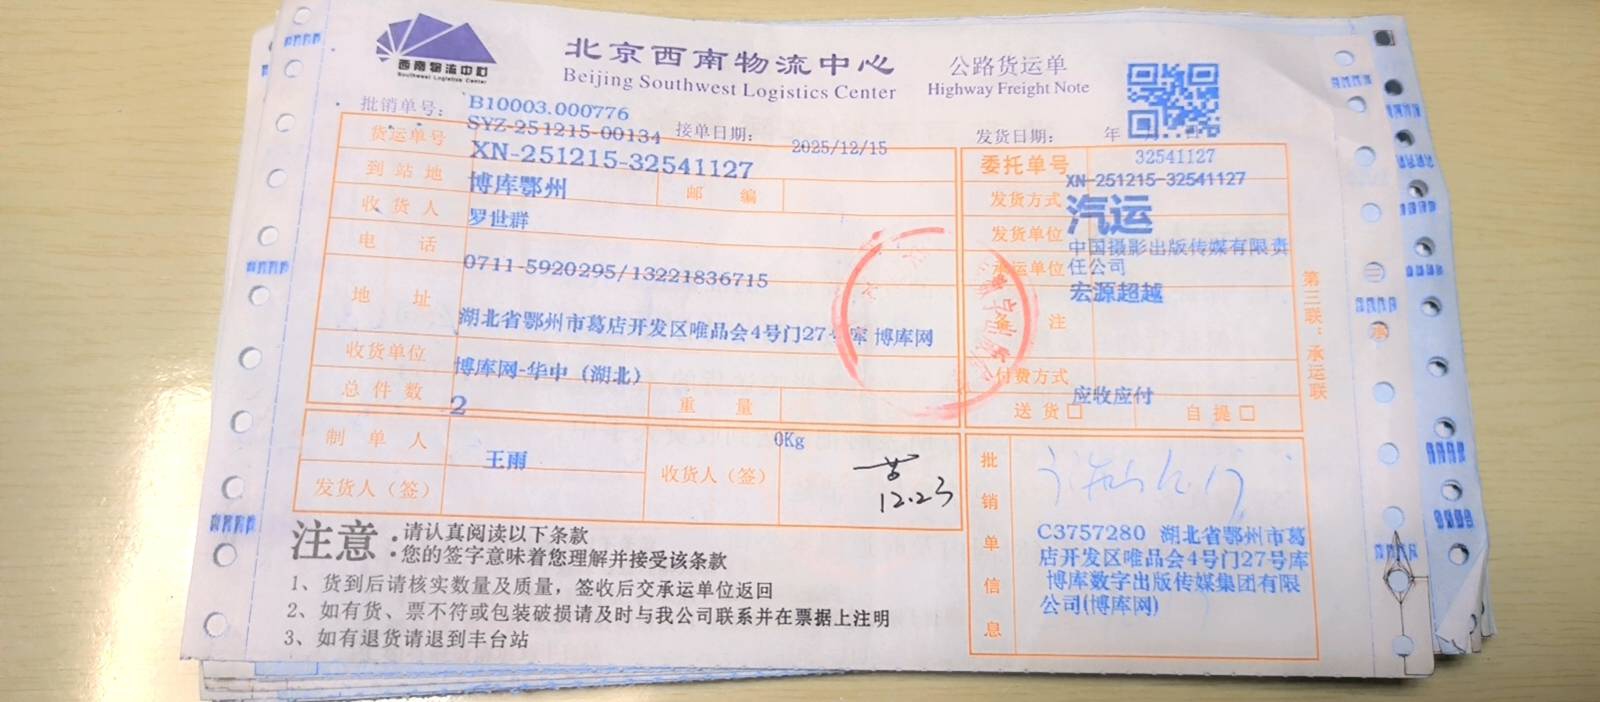 西南物流中心
Southwest Logistics Center
北京西南物流中心
Beijing Southwest Logistics Center
公路货运单
Highway Freight Note
批销单号：
B10003.000776
货运单号
SYZ-251215-00134
接单日期：
2025/12/15
发货日期：
年
XN-251215-32541127
委托单号
32541127
XN-251215-32541127
到站地
博库鄂州
邮编
发货方式
汽运
收货人
罗世群
发货单位
中国摄影出版传媒有限责
任公司
电话
0711-5920295/13221836715
承运单位
宏源超越
地址
湖北省鄂州市葛店开发区唯品会4号门27号库 博库网
备注
收货单位
博库网-华中（湖北）
付费方式
应收应付
总件数
2
重量
0Kg
送货□
自提□
制单人
王雨
收货人（签）
12.23
发货人（签）
批销单信息
C3757280 湖北省鄂州市葛
店开发区唯品会4号门27号库
博库数字出版传媒集团有限
公司(博库网)
第三联：承运联
注意：
请认真阅读以下条款
您的签字意味着您理解并接受该条款
1、货到后请核实数量及质量，签收后交承运单位返回
2、如有货、票不符或包装破损请及时与我公司联系并在票据上注明
3、如有退货请退到丰台站